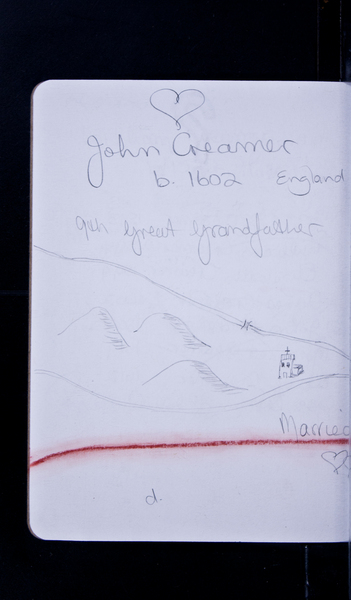 John Creamer
b. 1602 England
9th Great Grandfather
Married
d.